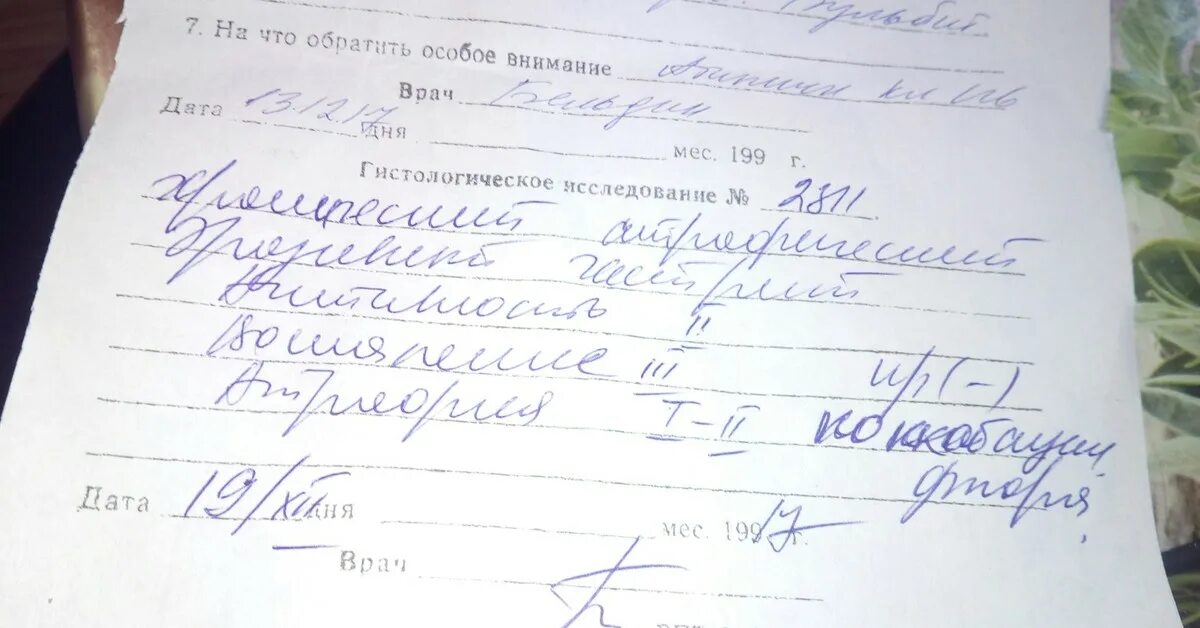 7. На что обратить особое внимание
Врач Бельдин
Дата 13.12.17 дня мес. 199 г.
Гистологическое исследование № 2811.
Хронический атрофический
гастрит
Активность II
Воспаление III
Атрофия I-II
нр(-)
коккобацил
флора
Дата 19/XII дня мес. 1997 г.
Врач